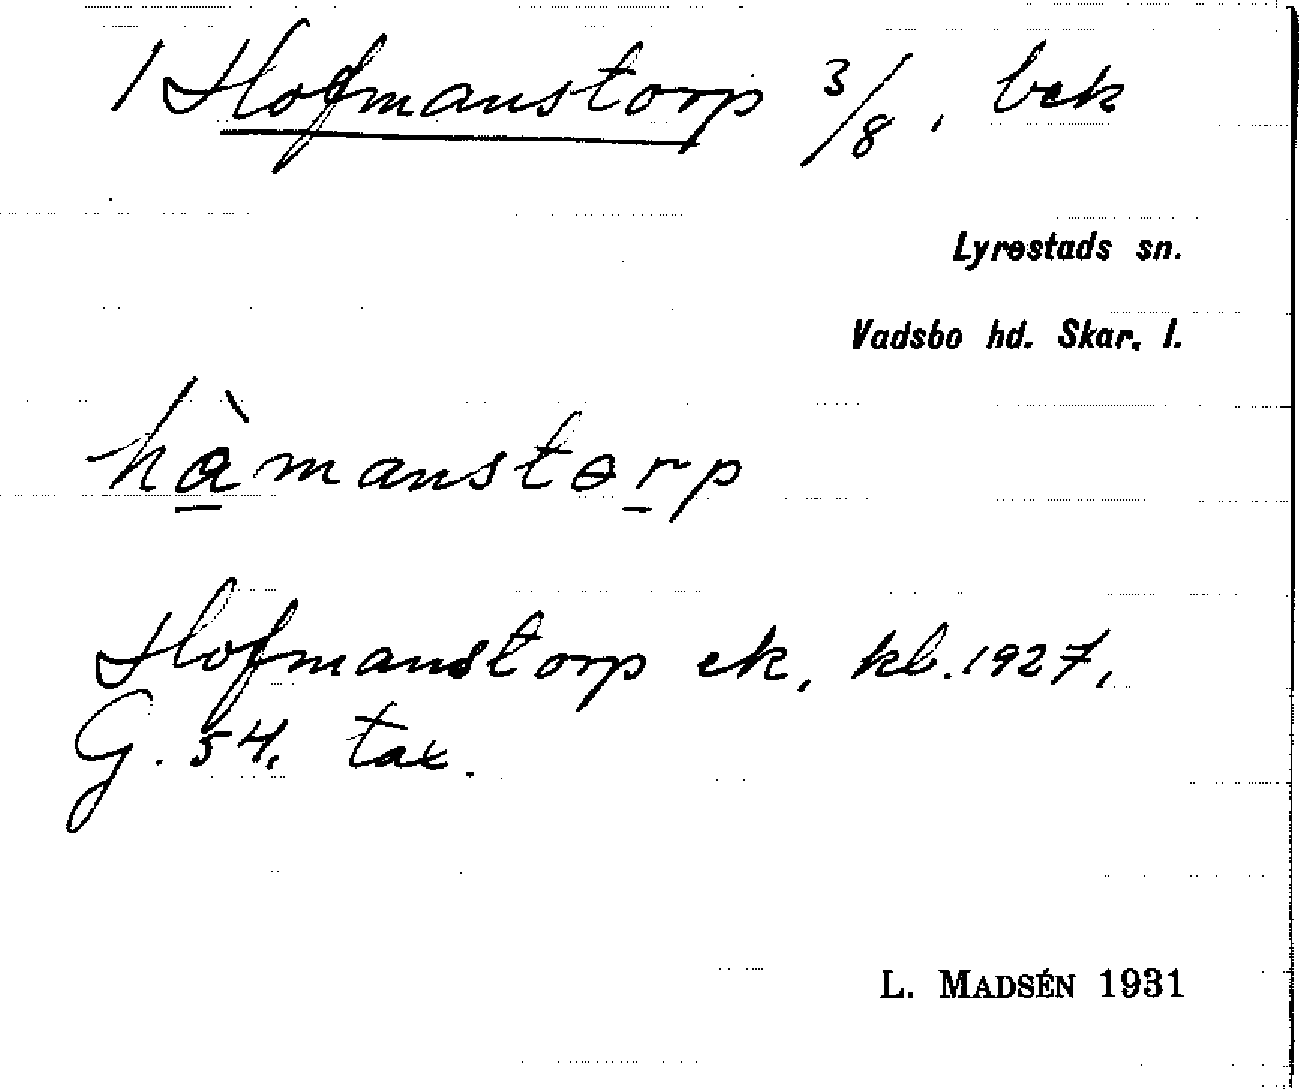 1 Hofmanstorp 3/8, bek
Lyrestads sn.
Vadsbo hd. Skar. l.
hàmanstɵrp
Hofmanstorp ek. kl. 1927,
G. 54. tax.
L. MADSÉN 1931